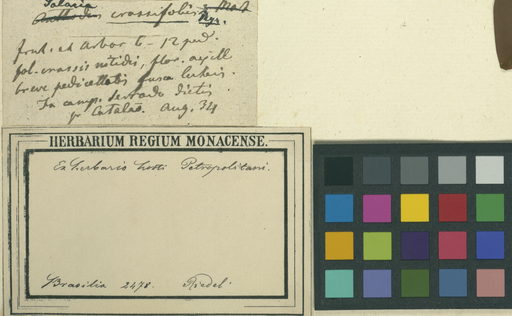 Salacia
crassifolia
frut. et arbor 6-12 ped.
fol. crassis nitidis, flor. axill
breve pedicellatis fusco luteis.
In camp. serrado dictis
pr Catalaõ. Aug. 34
HERBARIUM REGIUM MONACENSE.
Ex herbario horti Petropolitani.
Brasilia 2478. Riedel